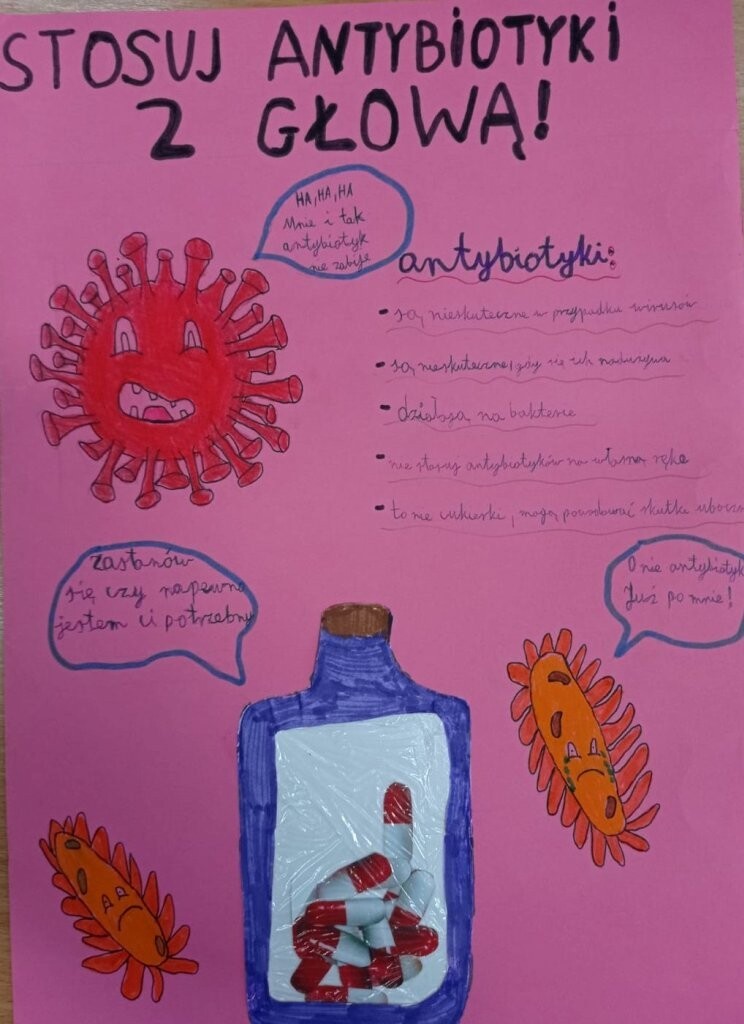 STOSUJ ANTYBIOTYKI
Z GŁOWĄ!
HA, HA, HA
Mnie i tak
antybiotyk
nie zabije
antybiotyki:
- są nieskuteczne w przypadku wirusów
- są nieskuteczne, gdy się ich nadużywa
- działają na bakterie
- nie stosuj antybiotyków na własną rękę
- to nie cukierki, mogą powodować skutki
Zastanów
się czy napewno
jestem ci potrzebny
O nie antybiotyk
Już po mnie!